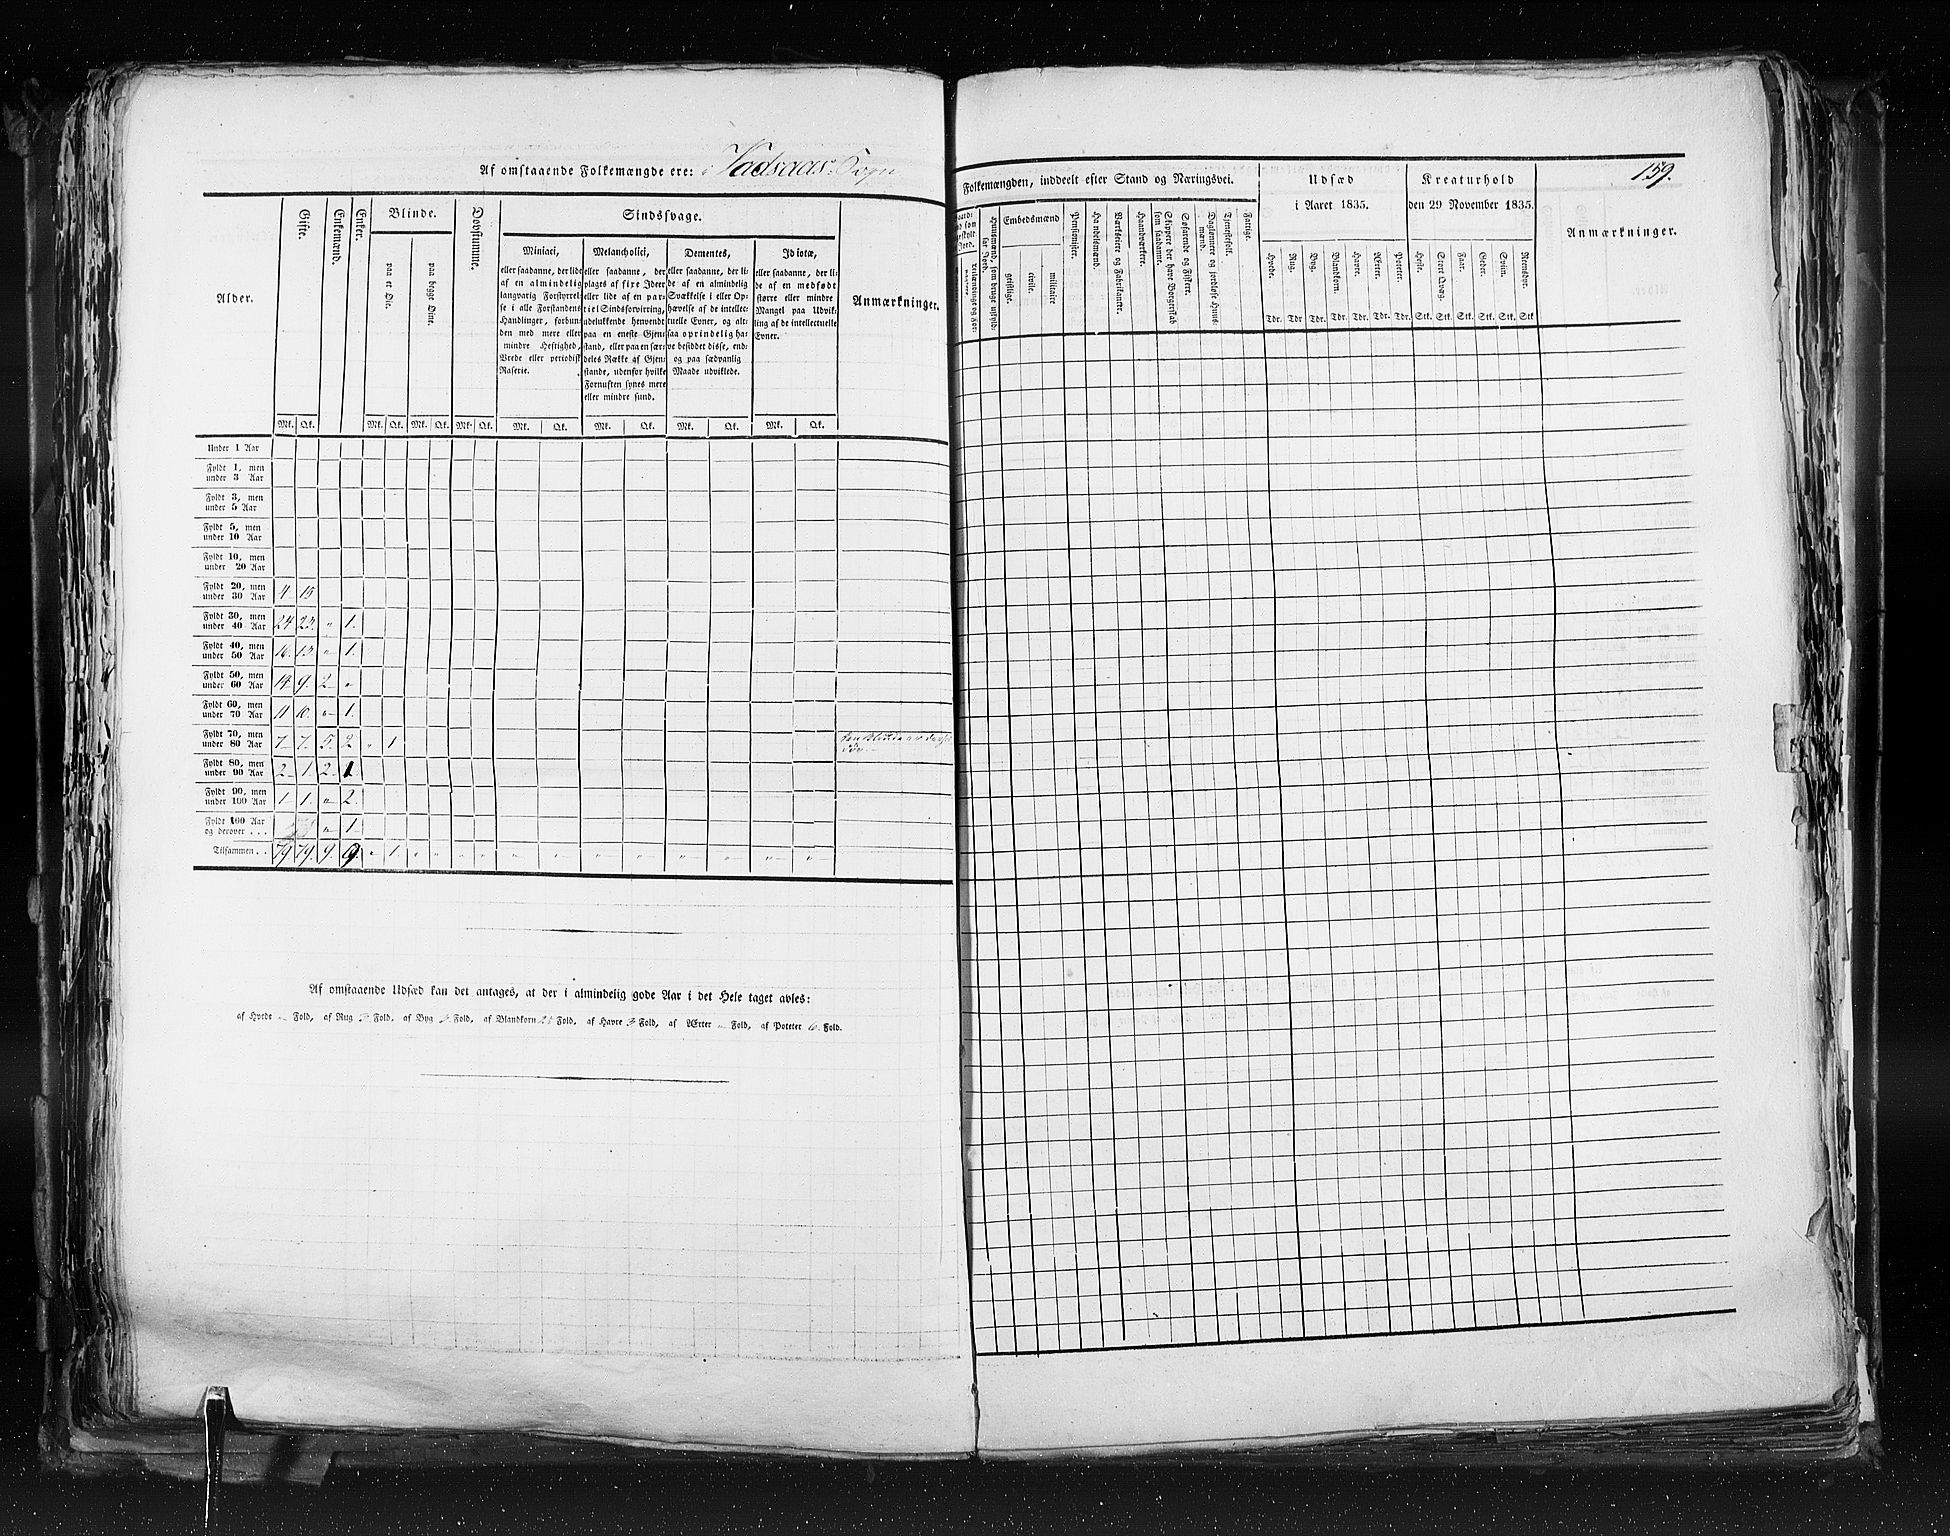 Af omstaaende Folkemængde ere: i Vadsaas Sogn
Alder.
Gifte.
Enkemænd.
Enker.
Blinde.
paa et Øie.
paa begge Øine.
Døvstumme.
Sindssvage.
Maniaci,
eller saadanne, der lide
af en almindelig
langvarig Forstyrrel-
se i alle Forstandens
Handlinger, forbun-
den med mere eller
mindre Heftighed,
Vrede eller periodisk
Raserie.
Melancholici,
eller saadanne, der
plages af fixe Ideer
eller lide af en par-
tiel Sindsforvirring,
udelukkende henvendt
paa en eneste Gjen-
stand, eller paa en sær-
deles Række af Gjen-
stande, udenfor hvilke
Fornuften synes mere
eller mindre sund.
Dementes,
eller saadanne, der li-
de af en almindelig
Svækkelse i eller Op-
hævelse af de intellec-
tuelle Evner, og alt-
saa oprindelig ha-
ve besiddet disse, end-
og paa sædvanlig
Maade udviklede.
Idiotæ,
eller saadanne, der li-
de af en medfødt
større eller mindre
Mangel paa Udvik-
ling af de intellectuelle
Evner.
Anmærkninger.
Mk. Qk. Mk. Qk. Mk. Qk. Mk. Qk. Mk. Qk. Mk. Qk. Mk. Qk. Mk. Qk.
Under 1 Aar
Fyldt 1, men
under 3 Aar
Fyldt 3, men
under 5 Aar
Fyldt 5, men
under 10 Aar
Fyldt 10, men
under 20 Aar
Fyldt 20, men
under 30 Aar 4 15
Fyldt 30, men
under 40 Aar 24 23. " 1.
Fyldt 40, men
under 50 Aar 16. 13. " 1.
Fyldt 50, men
under 60 Aar 14 9. 2 "
Fyldt 60, men
under 70 Aar 11 10. " 1.
Fyldt 70, men
under 80 Aar 7 7. 5. 2 " 1
Fyldt 80, men
under 90 Aar 2 1. 2 1
Fyldt 90, men
under 100 Aar 1 1. " 2.
Fyldt 100 Aar
og derover . . . " 1
Tilsammen . . 79 79. 9. 9. " 1 " " " " " " " " " " " "
Af omstaaende Udsæd kan det antages, at der i almindelig gode Aar i det Hele taget avles:
af Hvede " Fold, af Rug Fold, af Byg Fold, af Blandkorn Fold, af Havre 3 Fold, af Ærter " Fold, af Poteter 6 Fold.
159.
Folkemængden, inddeelt efter Stand og Næringsvei.
Huusmænd, som bruge uskyld-
sat Jord.
Embedsmænd
geistlige.
civile.
militaire
Pensionister.
Handelsmænd.
Værkseiere og Fabrikanter.
Haandværkere.
Skippere der have Borgerskab
som saadanne.
Søfarende og Fiskere.
Daglønnere og jordløse Huus-
mænd.
Tjenestefolk.
Fattige.
Udsæd
i Aaret 1835.
Hvede. Rug. Byg. Blandkorn. Havre. Ærter. Poteter.
Tdr. Tdr. Tdr. Tdr. Tdr. Tdr. Tdr.
Kreaturhold
den 29 November 1835.
Heste. Stort Qvæg. Faar. Geder. Sviin. Reensdyr.
Stk. Stk. Stk. Stk. Stk. Stk
Anmærkninger.